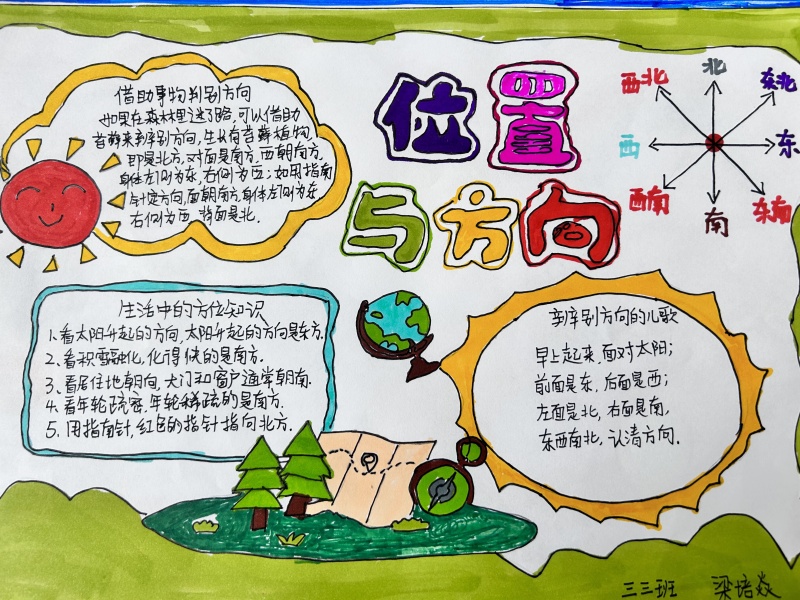 位置
与方向
借助事物判别方向
如果在森林里迷了路,可以借助
苔藓来辨别方向,生长有苔藓植物,
即是北方,对面是南方,面朝南方,
身体左侧为东,右侧为西;如用指南
针定方向,面朝南方,身体左侧为东,
右侧为西,背面是北.
北
西北
东北
西
东
西南
东南
南
生活中的方位知识
1.看太阳升起的方向,太阳升起的方向是东方.
2.看积雪融化,化得快的是南方.
3.看居住地朝向,大门和窗户通常朝南.
4.看年轮疏密,年轮稀疏的是南方.
5.用指南针,红色的指针指向北方.
辨别方向的儿歌
早上起来,面对太阳;
前面是东,后面是西;
左面是北,右面是南,
东西南北,认清方向.
三三班 梁培焱